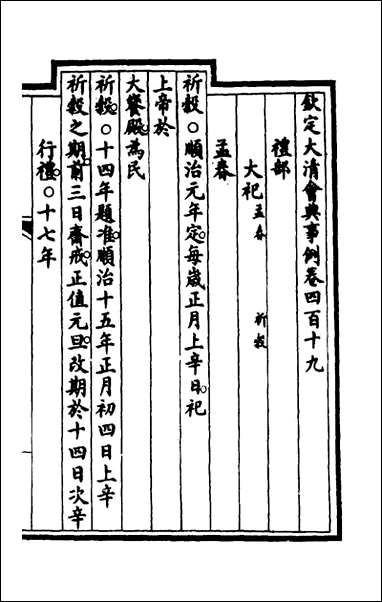 欽定大清會典事例卷四百十九
禮部
大祀孟春 祈穀
孟春
祈穀○順治元年定每歲正月上辛日祀
上帝於
大饗殿為民
祈穀○十四年題准順治十五年正月初四日上辛
祈穀之期前三日齋戒正值元旦改期於十四日次辛
行禮○十七年